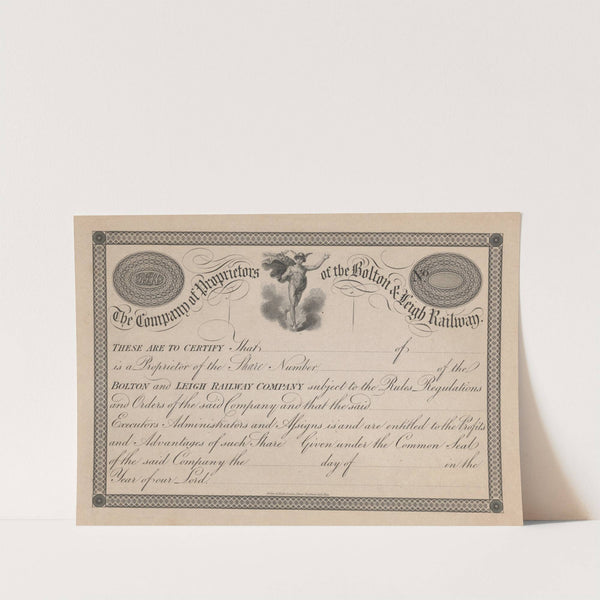 The Company of Proprietors of the Bolton & Leigh Railway.
No
THESE ARE TO CERTIFY That of
is a Proprietor of the Share Number of the
BOLTON and LEIGH RAILWAY COMPANY subject to the Rules, Regulations
and Orders of the said Company and that the said
Executors Administrators and Assigns is and are entitled to the Profits
and Advantages of such Share Given under the Common Seal
of the said Company the day of in the
Year of our Lord.